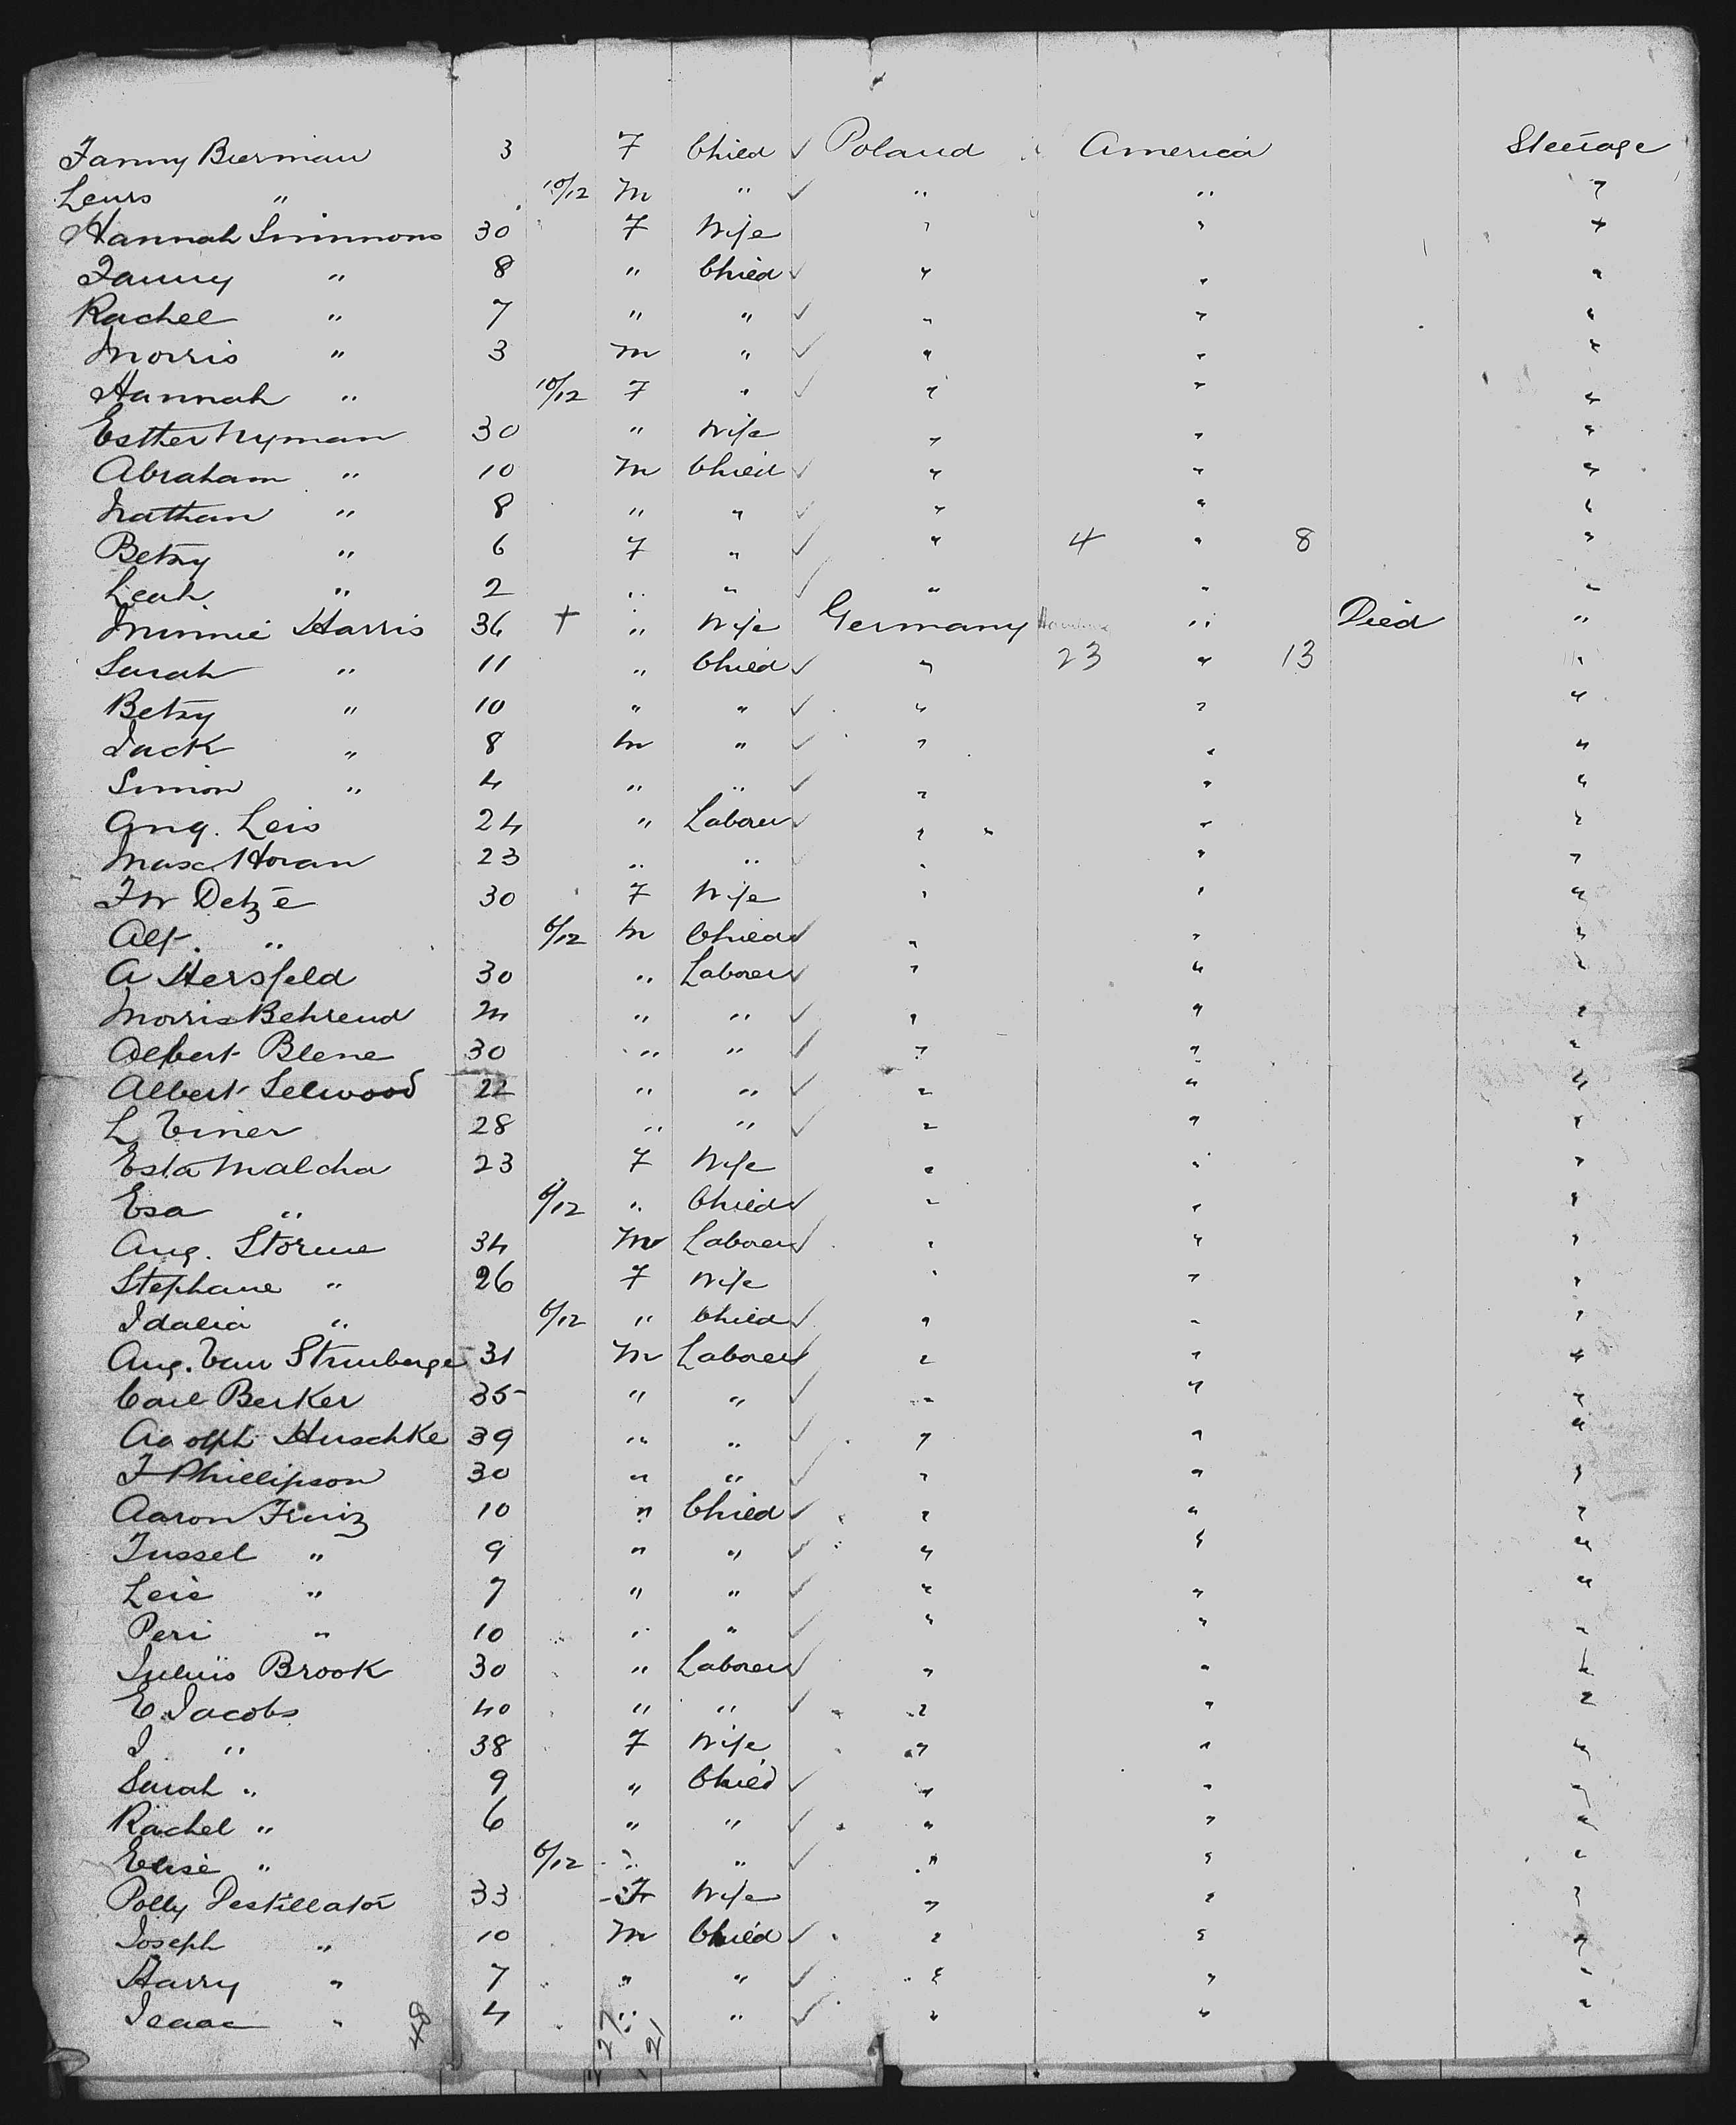 Fanny Bierman 3 F Child ✓ Poland America Steerage
Lewis " 10/12 M " ✓ " " "
Hannah Simmons 30 F Wife " " "
Fanny " 8 " Child ✓ " " "
Rachel " 7 " " ✓ " " "
Morris " 3 M " ✓ " " "
Hannah " 10/12 F " ✓ " " "
Esther Nyman 30 " Wife " " "
Abraham " 10 M Child ✓ " " "
Nathan " 8 " " ✓ " " "
Betsy " 6 F " ✓ " 4 " 8 "
Leah " 2 " " ✓ " " "
Minnie Harris 36 + " Wife Germany " Died "
Sarah " 11 " Child ✓ " 23 " 13 "
Betsy " 10 " " ✓ " " "
Jack " 8 M " ✓ " " "
Simon " 4 " " ✓ " " "
Aug. Leis 24 " Laborer ✓ " " "
Max Horan 23 " " ✓ " " "
Fr Detzē 30 F Wife " " "
Alf. " 6/12 M Child ✓ " " "
A Hersfeld 30 " Laborer ✓ " " "
Morris Behrend M " " ✓ " " "
Albert Blene 30 " " ✓ " " "
Albert Selwood 22 " " ✓ " " "
L Viner 28 " " ✓ " " "
Esta Malcha 23 F Wife " " "
Esa " 6/12 " Child ✓ " " "
Aug. Storme 34 M Laborer ✓ " " "
Stephane " 26 F Wife " " "
Idalia " 6/12 " Child ✓ " " "
Aug. Van Strinberge 31 M Laborer ✓ " " "
Carl Berker 35 " " ✓ " " "
Adolph Huschke 39 " " ✓ " " "
F Phillipson 30 " " ✓ " " "
Aaron 10 " Child ✓ " " "
Jussel " 9 " " ✓ " " "
Leie " 7 " " ✓ " " "
Peri " 10 " " ✓ " " "
Julius Brook 30 " Laborer ✓ " " "
E Jacobs 40 " " ✓ " " "
J " 38 F Wife " " "
Sarah " 9 " Child ✓ " " "
Rachel " 6 " " ✓ " " "
Elise " 6/12 " " ✓ " " "
Polly Destillator 33 F Wife " " "
Joseph " 10 M Child ✓ " " "
Harry " 7 " " ✓ " " "
Isaac " 4 " " ✓ " " "
48 27 21